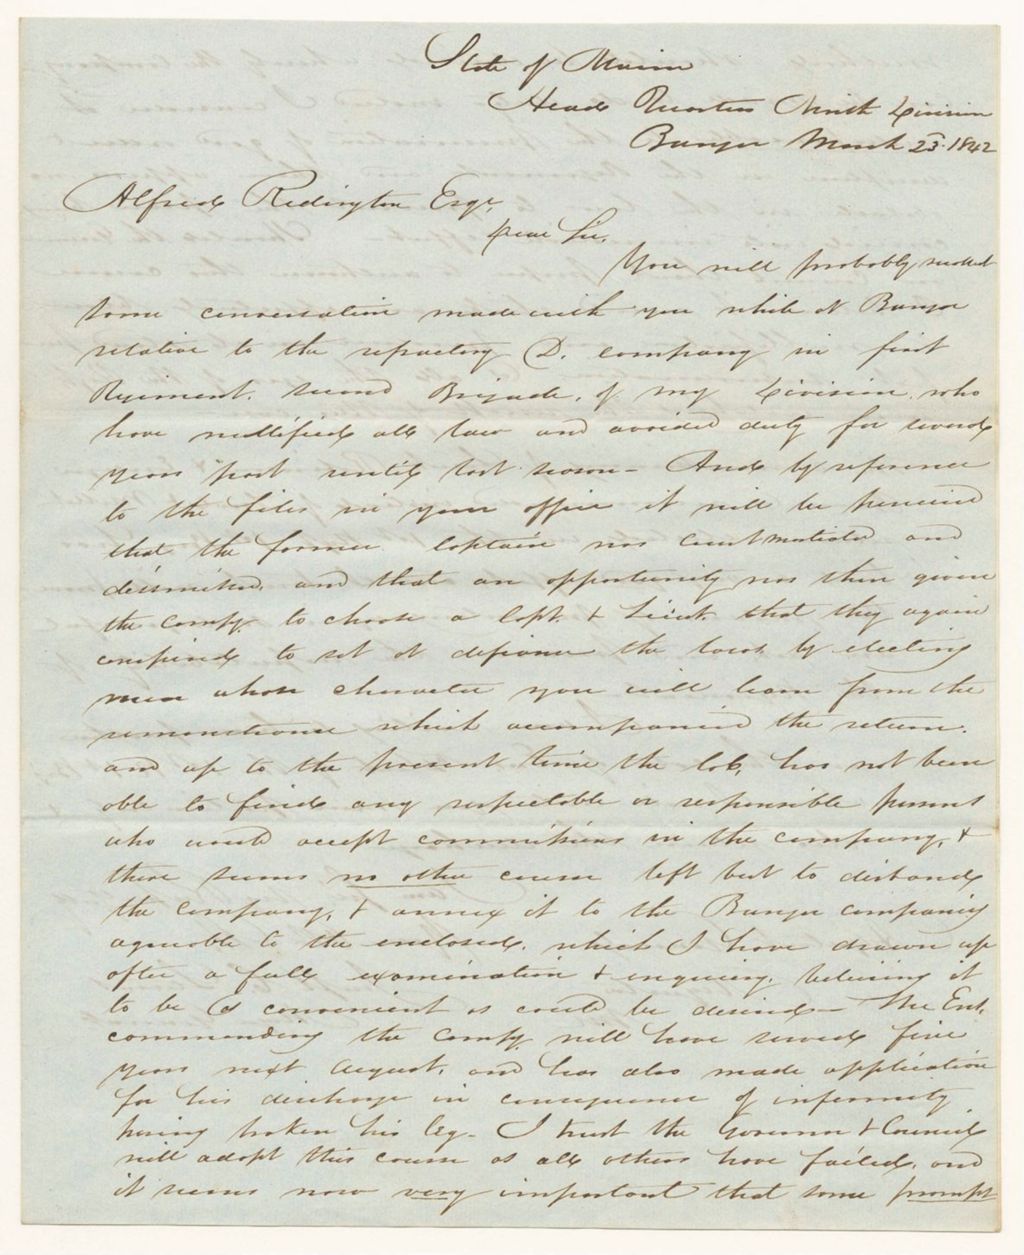 State of Maine
Head Quarters Ninth Division
Bangor March 23. 1842
Alfred Redington Esqr.
Dear Sir,
You will probably recollect
some conversation made with you while at Bangor
relative to the refractory D. company in first
Regiment, second Brigade, of my Division, who
have nullified all law and avoided duty for several
years past until last season - And by reference
to the files in your office it will be perceived
that the former Captain was courtmartialed and
dismissed, and that an opportunity was then given
the compy. to choose a Capt. & Lieut. that they again
conspired to set at defiance the laws by electing
men whose character you will learn from the
remonstrance which accompanied the return.
and up to the present time the Col. has not been
able to find any respectable or responsible persons
who would accept commissions in the company, &
there seems no other course left but to disband
the company, & annex it to the Bangor companies
agreeable to the enclosed, which I have drawn up
after a full examination & enquiry, believing it
to be as convenient as could be desired - The Ens.
commanding the compy. will have served five
years next August, and has also made application
for his discharge in consequence of infirmity
having broken his leg - I trust the Governor & Council
will adopt this course as all others have failed, and
it seems now very important that some prompt